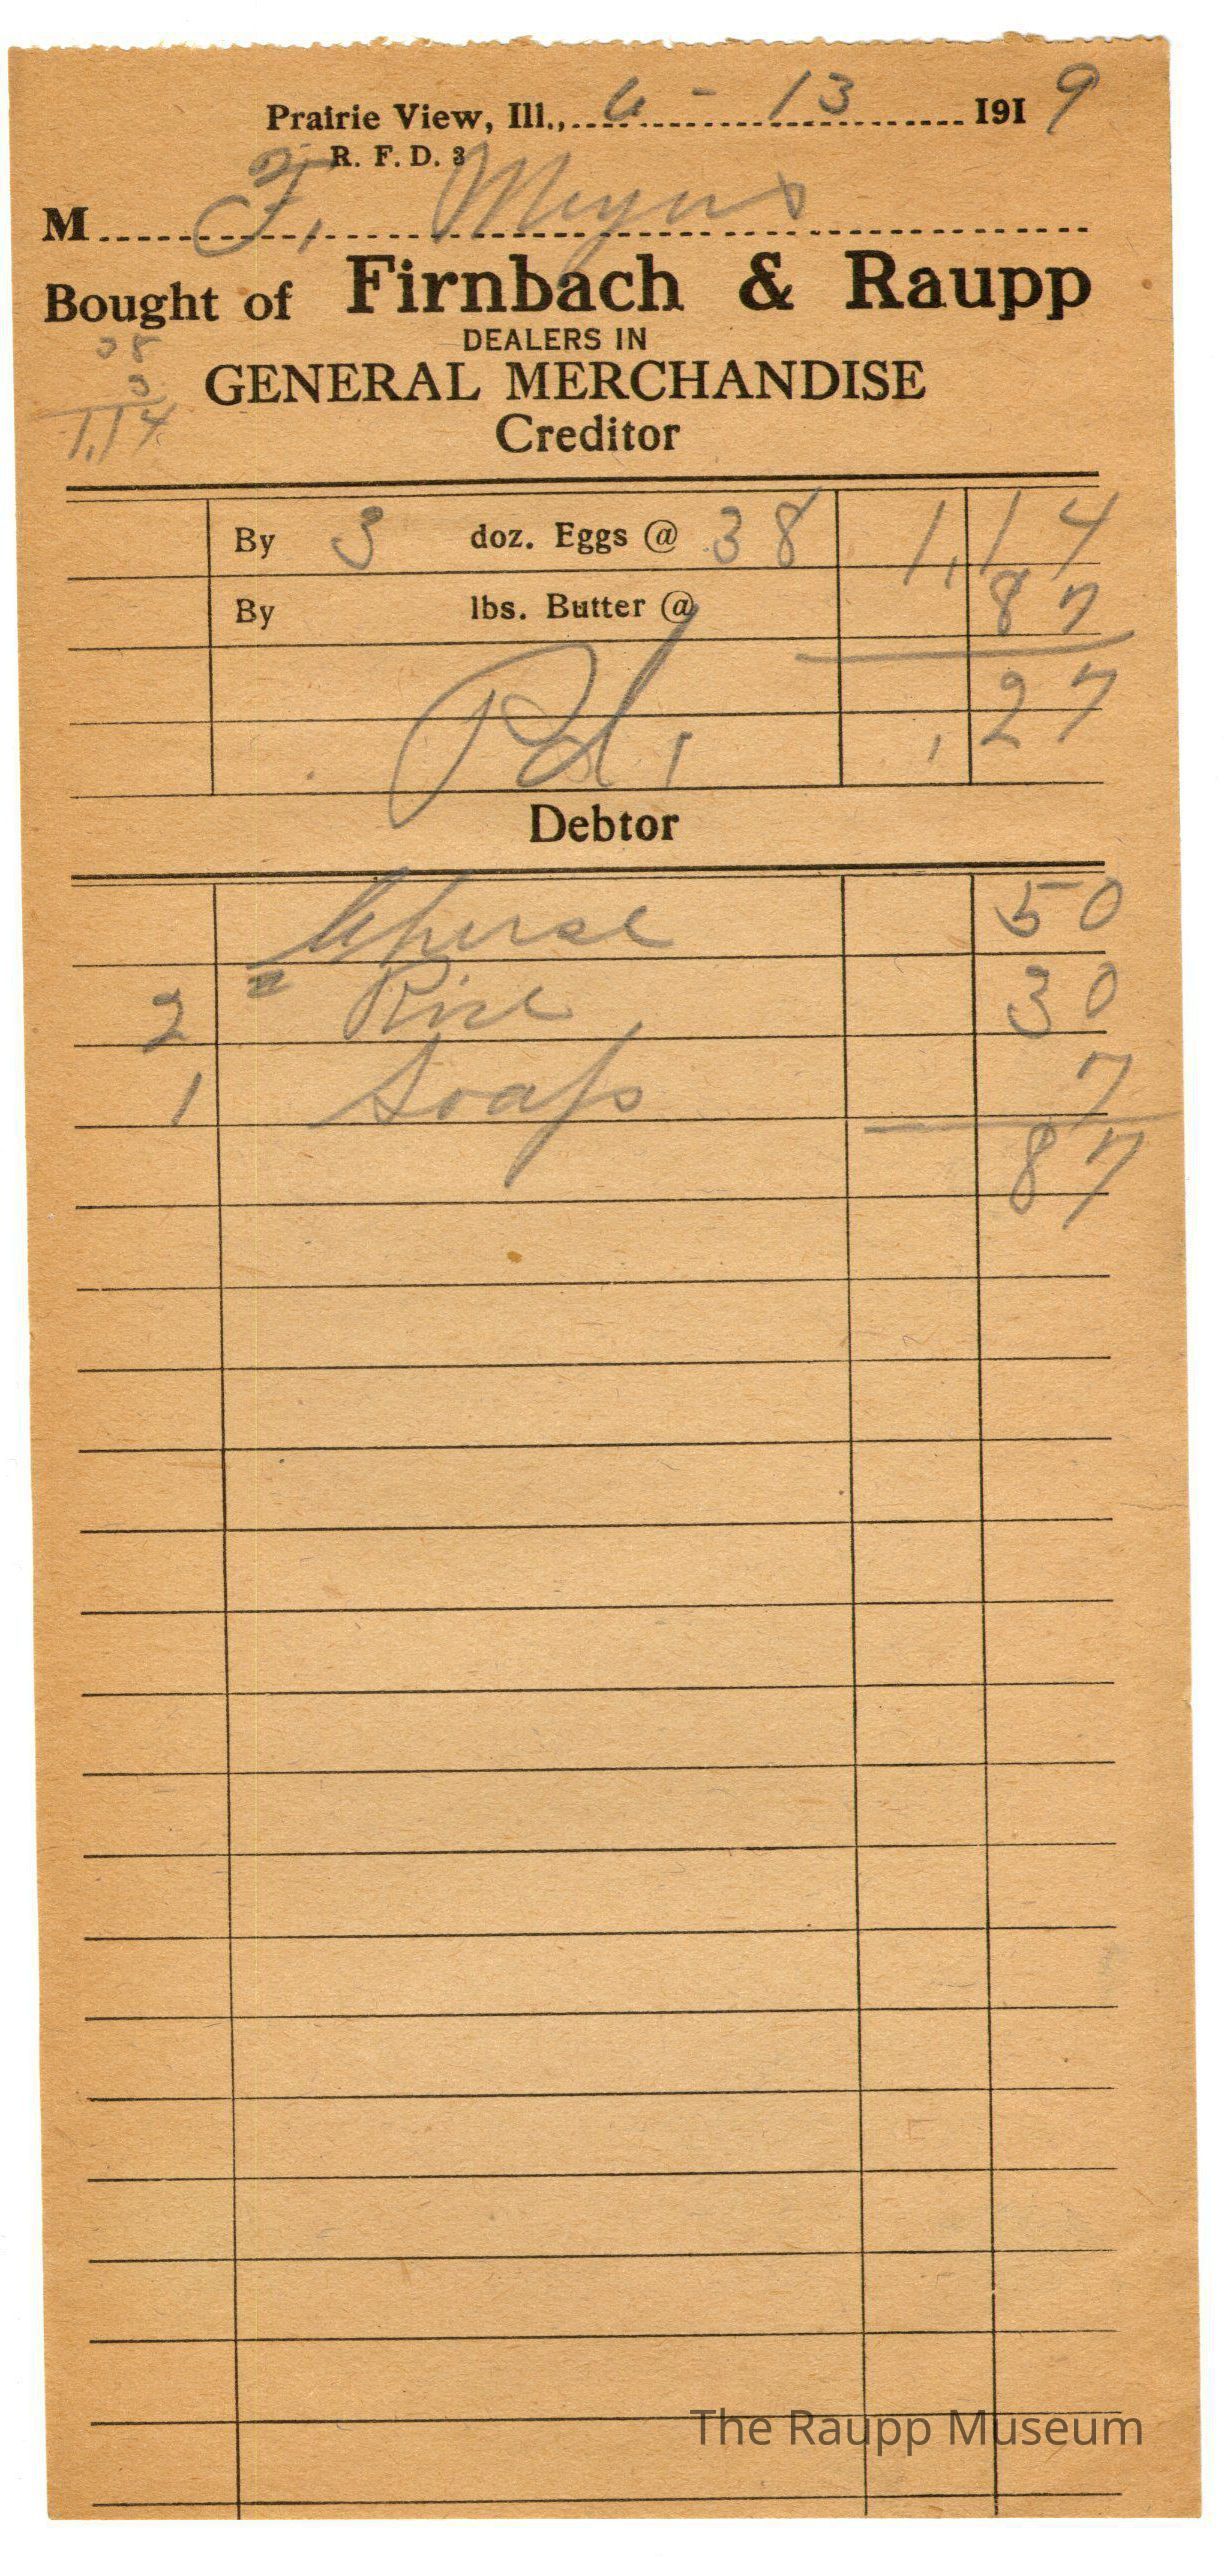 Prairie View, Ill., 6 - 13 1919
R. F. D. 3
M F. Meyers
Bought of Firnbach & Raupp
DEALERS IN
38
GENERAL MERCHANDISE
3
1.14
Creditor
By 3 doz. Eggs @ 38 1.14
By lbs. Butter @ 87
.27
Pd.
Debtor
50
2 Rice 30
1 Soap 7
87
The Raupp Museum